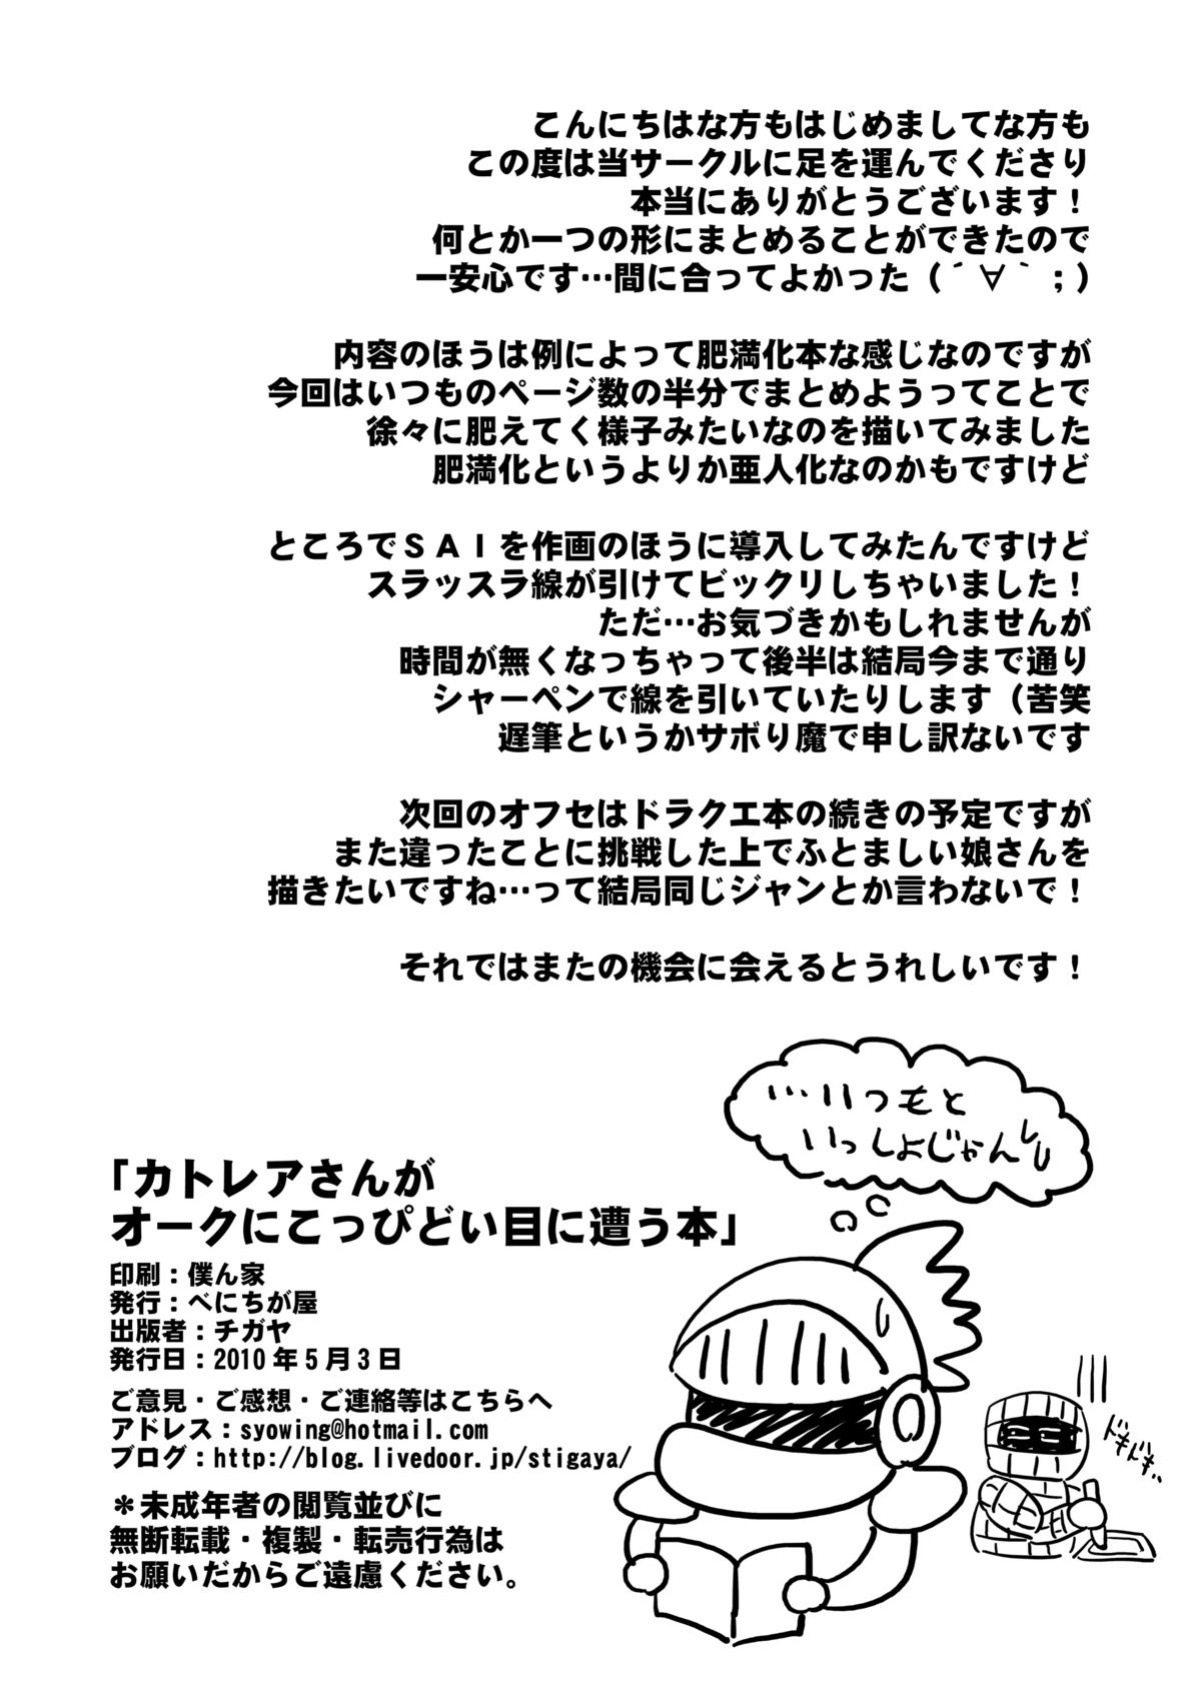 こんにちはな方もはじめましてな方も
この度は当サークルに足を運んでくださり
本当にありがとうございます！
何とか一つの形にまとめることができたので
一安心です…間に合ってよかった（´∀｀；）
内容のほうは例によって肥満化本な感じなのですが
今回はいつものページ数の半分でまとめようってことで
徐々に肥えてく様子みたいなのを描いてみました
肥満化というよりか亜人化なのかもですけど
ところでＳＡＩを作画のほうに導入してみたんですけど
スラッスラ線が引けてビックリしちゃいました！
ただ…お気づきかもしれませんが
時間が無くなっちゃって後半は結局今まで通り
シャーペンで線を引いていたりします（苦笑
遅筆というかサボり魔で申し訳ないです
次回のオフセはドラクエ本の続きの予定ですが
また違ったことに挑戦した上でふとましい娘さんを
描きたいですね…って結局同じジャンとか言わないで！
それではまたの機会に会えるとうれしいです！
…いつもと
いっしょじゃん
「カトレアさんが
オークにこっぴどい目に遭う本」
印刷：僕ん家
発行：べにちが屋
出版者：チガヤ
発行日：2010年5月3日
ご意見・ご感想・ご連絡等はこちらへ
アドレス：syowing@hotmail.com
ブログ：http://blog.livedoor.jp/stigaya/
＊未成年者の閲覧並びに
無断転載・複製・転売行為は
お願いだからご遠慮ください。
ドキドキ‥